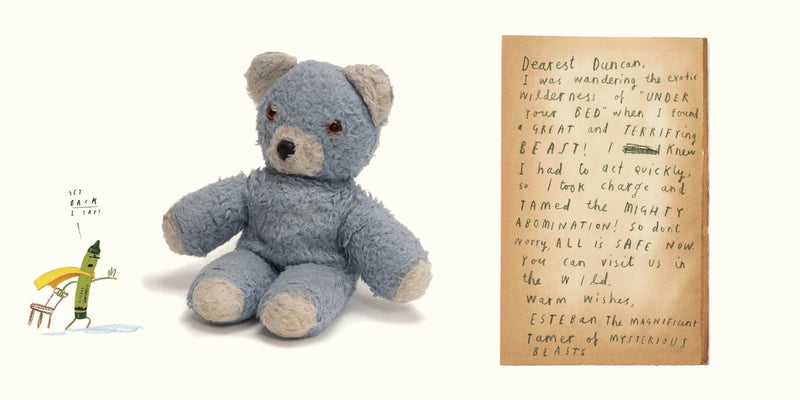 GET
BACK
I SAY!
Dearest Duncan,
I was wandering the exotic
wilderness of "UNDER
your BED" when I found
a GREAT and TERRIFying
BEAST! I knew
I had to act quickly,
so I took charge and
TAMED the MIGHTY
ABOMINATION! So dont
worry, ALL is SAFE NOW.
You can visit us in
the wild.
Warm wishes,
ESTEBan THE MAGNIFICENT
Tamer of MYSTERIOUS
BEASTS